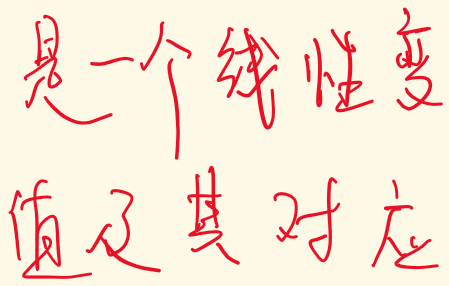 是一个线性变
值及其对应